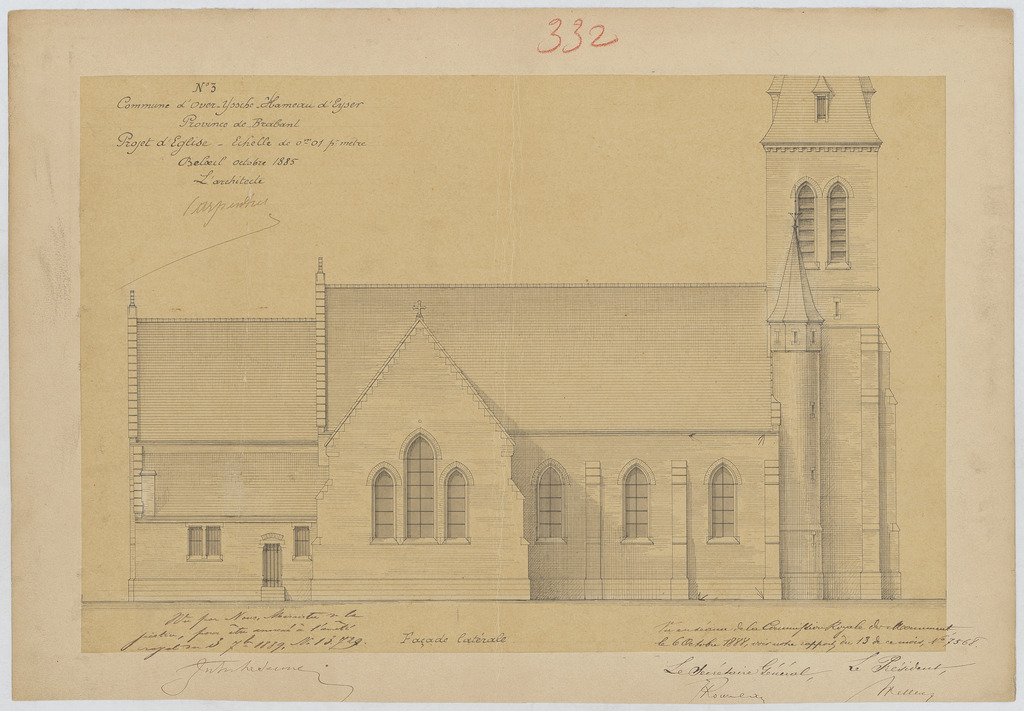 332
N° 3
Commune d'Over-Yssche-Hameau d'Eyser
Province de Brabant
Projet d'Eglise - Echelle de 0m01 pr mètre
Belœil octobre 1885
L'architecte
Façade latérale
Vu par Nous, Ministre de la
Justice, pour être annexé à l'arrêté
royal du
Vu en séance de la Commission Royale des Monuments
le 6 Octobre 1888, voir notre rapport du 13 de ce mois, N°
Le Secrétaire Général,
Le Président,